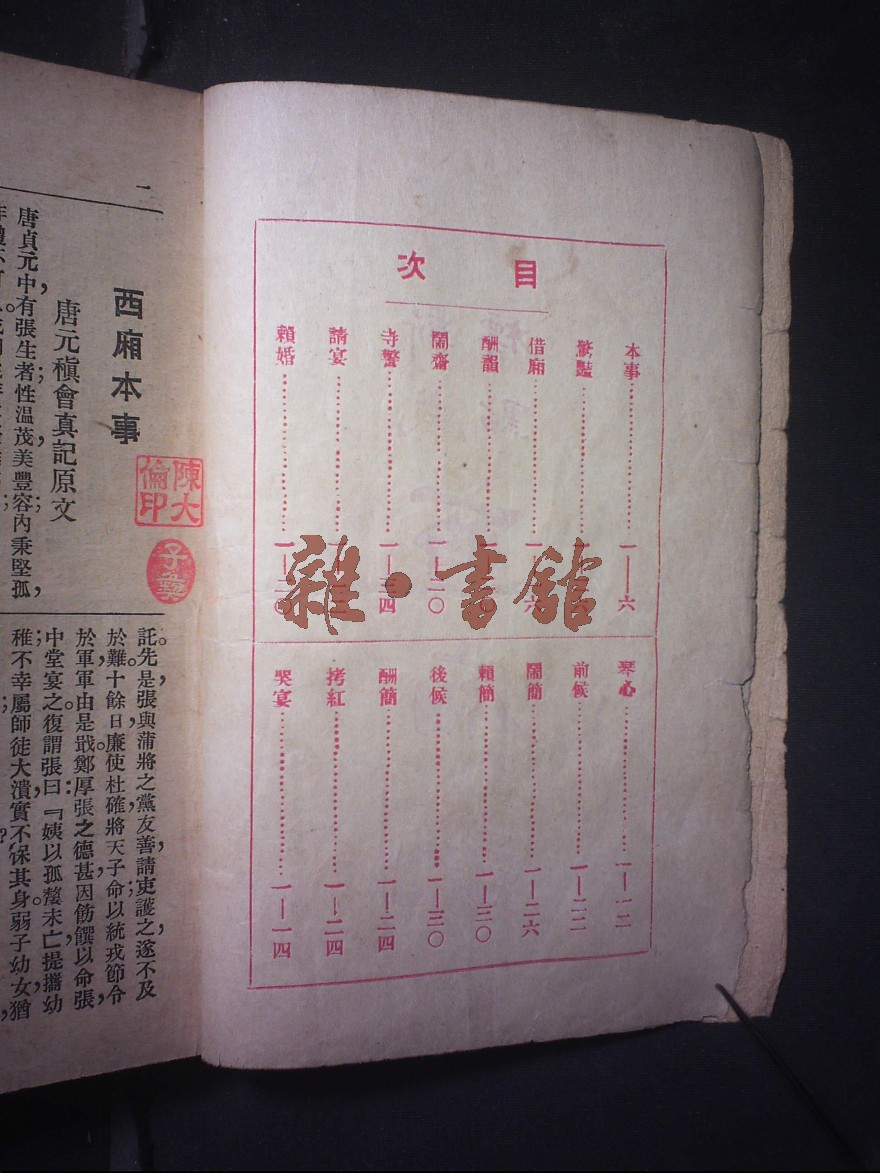 目次
本事 一—六
驚豔
借廂 六
酬韻
鬧齋 一—二〇
寺警 一 四
請宴
賴婚 一
琴心 一—一二
前候 一—二二
鬧簡 一—二六
賴簡 一—三〇
後候 一—三〇
酬簡 一—二四
拷紅 一—二四
哭宴 一—一四
雜·書館
二
西廂本事
唐元稹會真記原文
陳大倫印
子彝
唐貞元中，有張生者；性溫茂，美豐容；內秉堅孤，
託。先是張與蒲將之黨友善，請吏護之，遂不及
於難。十餘日，廉使杜確將天子命，以統戎節，令
於軍，軍由是戢。鄭厚張之德甚，因飭饌以命張，
中堂宴之。復謂張曰：『姨以孤嫠未亡，提攜幼
稚；不幸屬師徒大潰，實不保其身。弱子幼女，猶